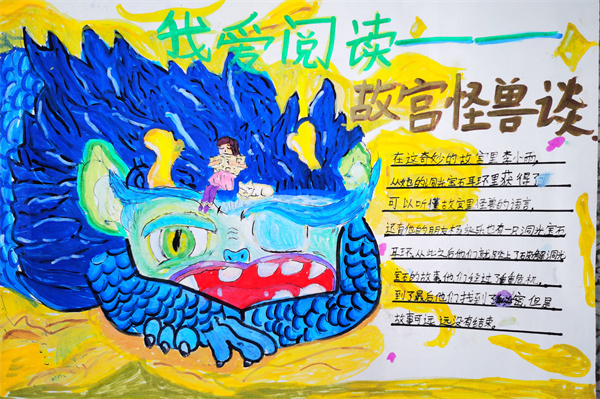 我爱阅读——
故宫怪兽谈
在这奇妙的故宫里李小雨,
从她的洞光宝石耳环里获得了
可以听懂故宫里怪兽的语言,
还有他的朋友杨永乐也有一只洞光宝石
耳环,从此之后他们就踏上了破解洞光
宝石的故事他们经过了重重危机,
到了最后他们找到了 但是
故事可远远没有结束。